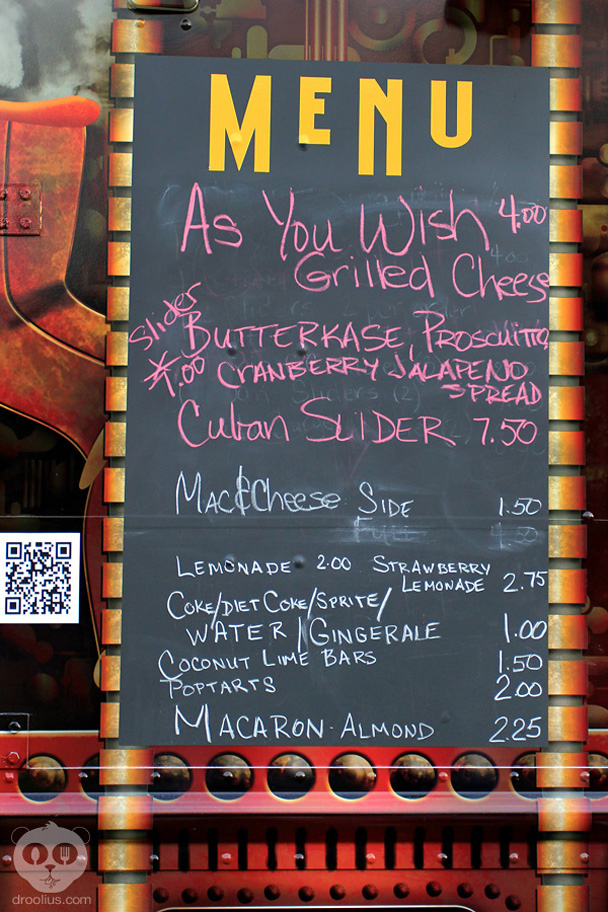 MENU
As You Wish 4.00
Grilled Cheese
Slider BUTTERKASE, PROSCUITTO,
*7.00 CRANBERRY JALAPENO
SPREAD
Cuban SLIDER 7.50
Mac&Cheese SIDE 1.50
LEMONADE 2.00 STRAWBERRY
LEMONADE 2.75
COKE/DIET COKE/SPRITE/
WATER/GINGERALE 1.00
COCONUT LIME BARS 1.50
POPTARTS 2.00
MACARON-ALMOND 2.25
droolius.com